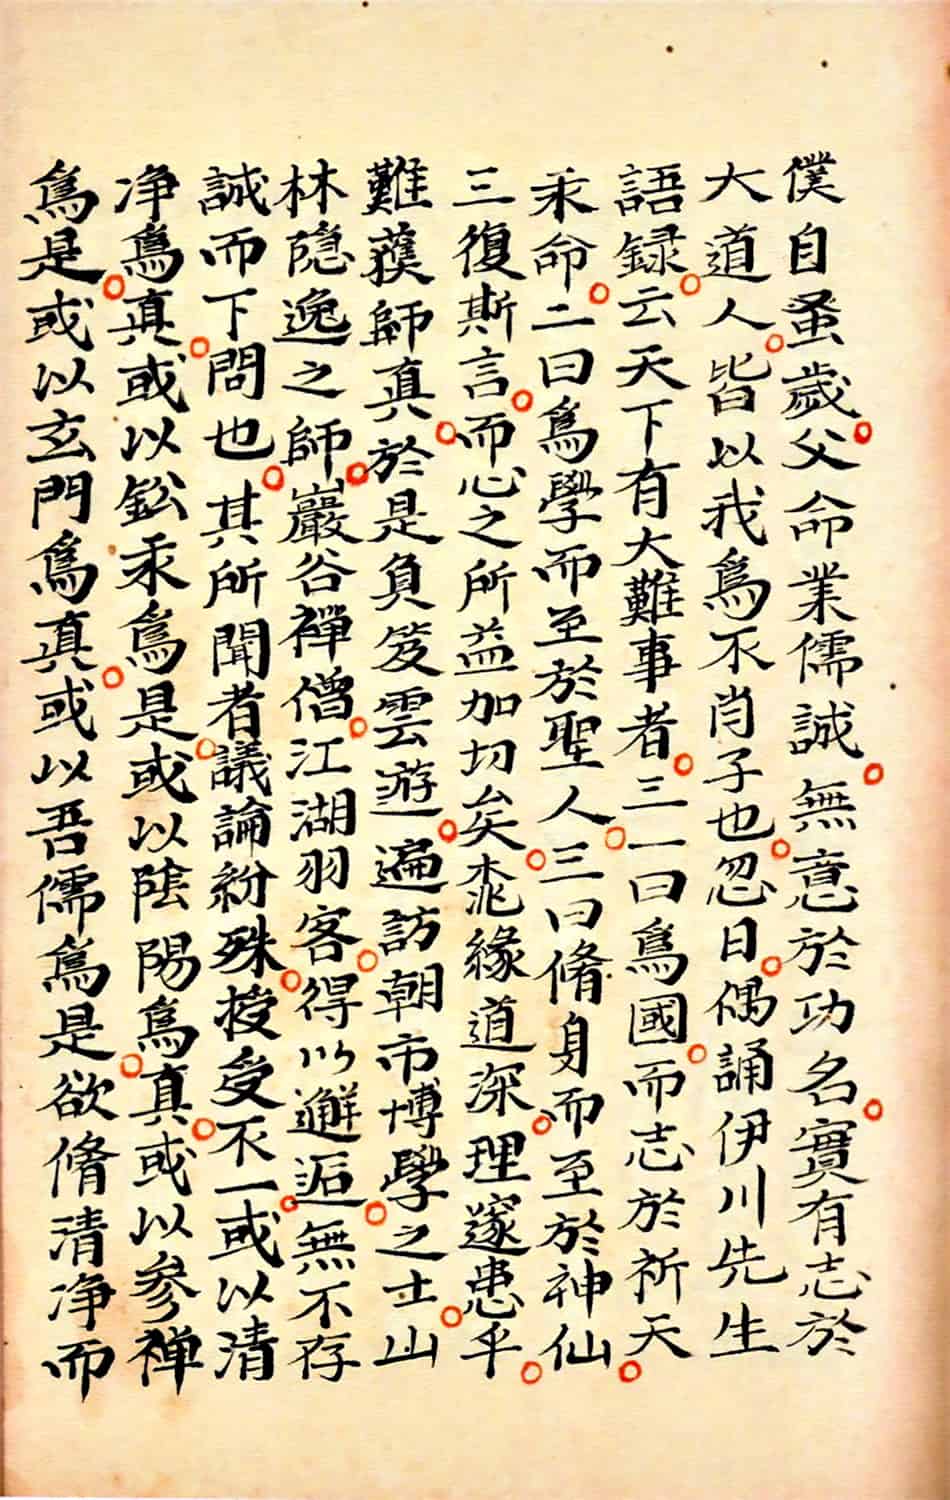 僕自蚤歲父命業儒誠無意於功名實有志於
大道人皆以我爲不肖子也忽日偶誦伊川先生
語録云天下有大難事者三一曰爲國而志於祈天
永命二曰爲學而至於聖人三曰脩身而至於神仙
三復斯言而心之所益加切矣柰緣道深理邃患乎
難獲師真於是負笈雲遊遍訪朝市博學之士山
林隠逸之師巖谷禪僧江湖羽客得以邂逅無不存
誠而下問也其所聞者議論紛殊授受不一或以清
净爲真或以鈆汞爲是或以陰陽爲真或以參禅
爲是或以玄門爲真或以吾儒爲是欲脩清净而